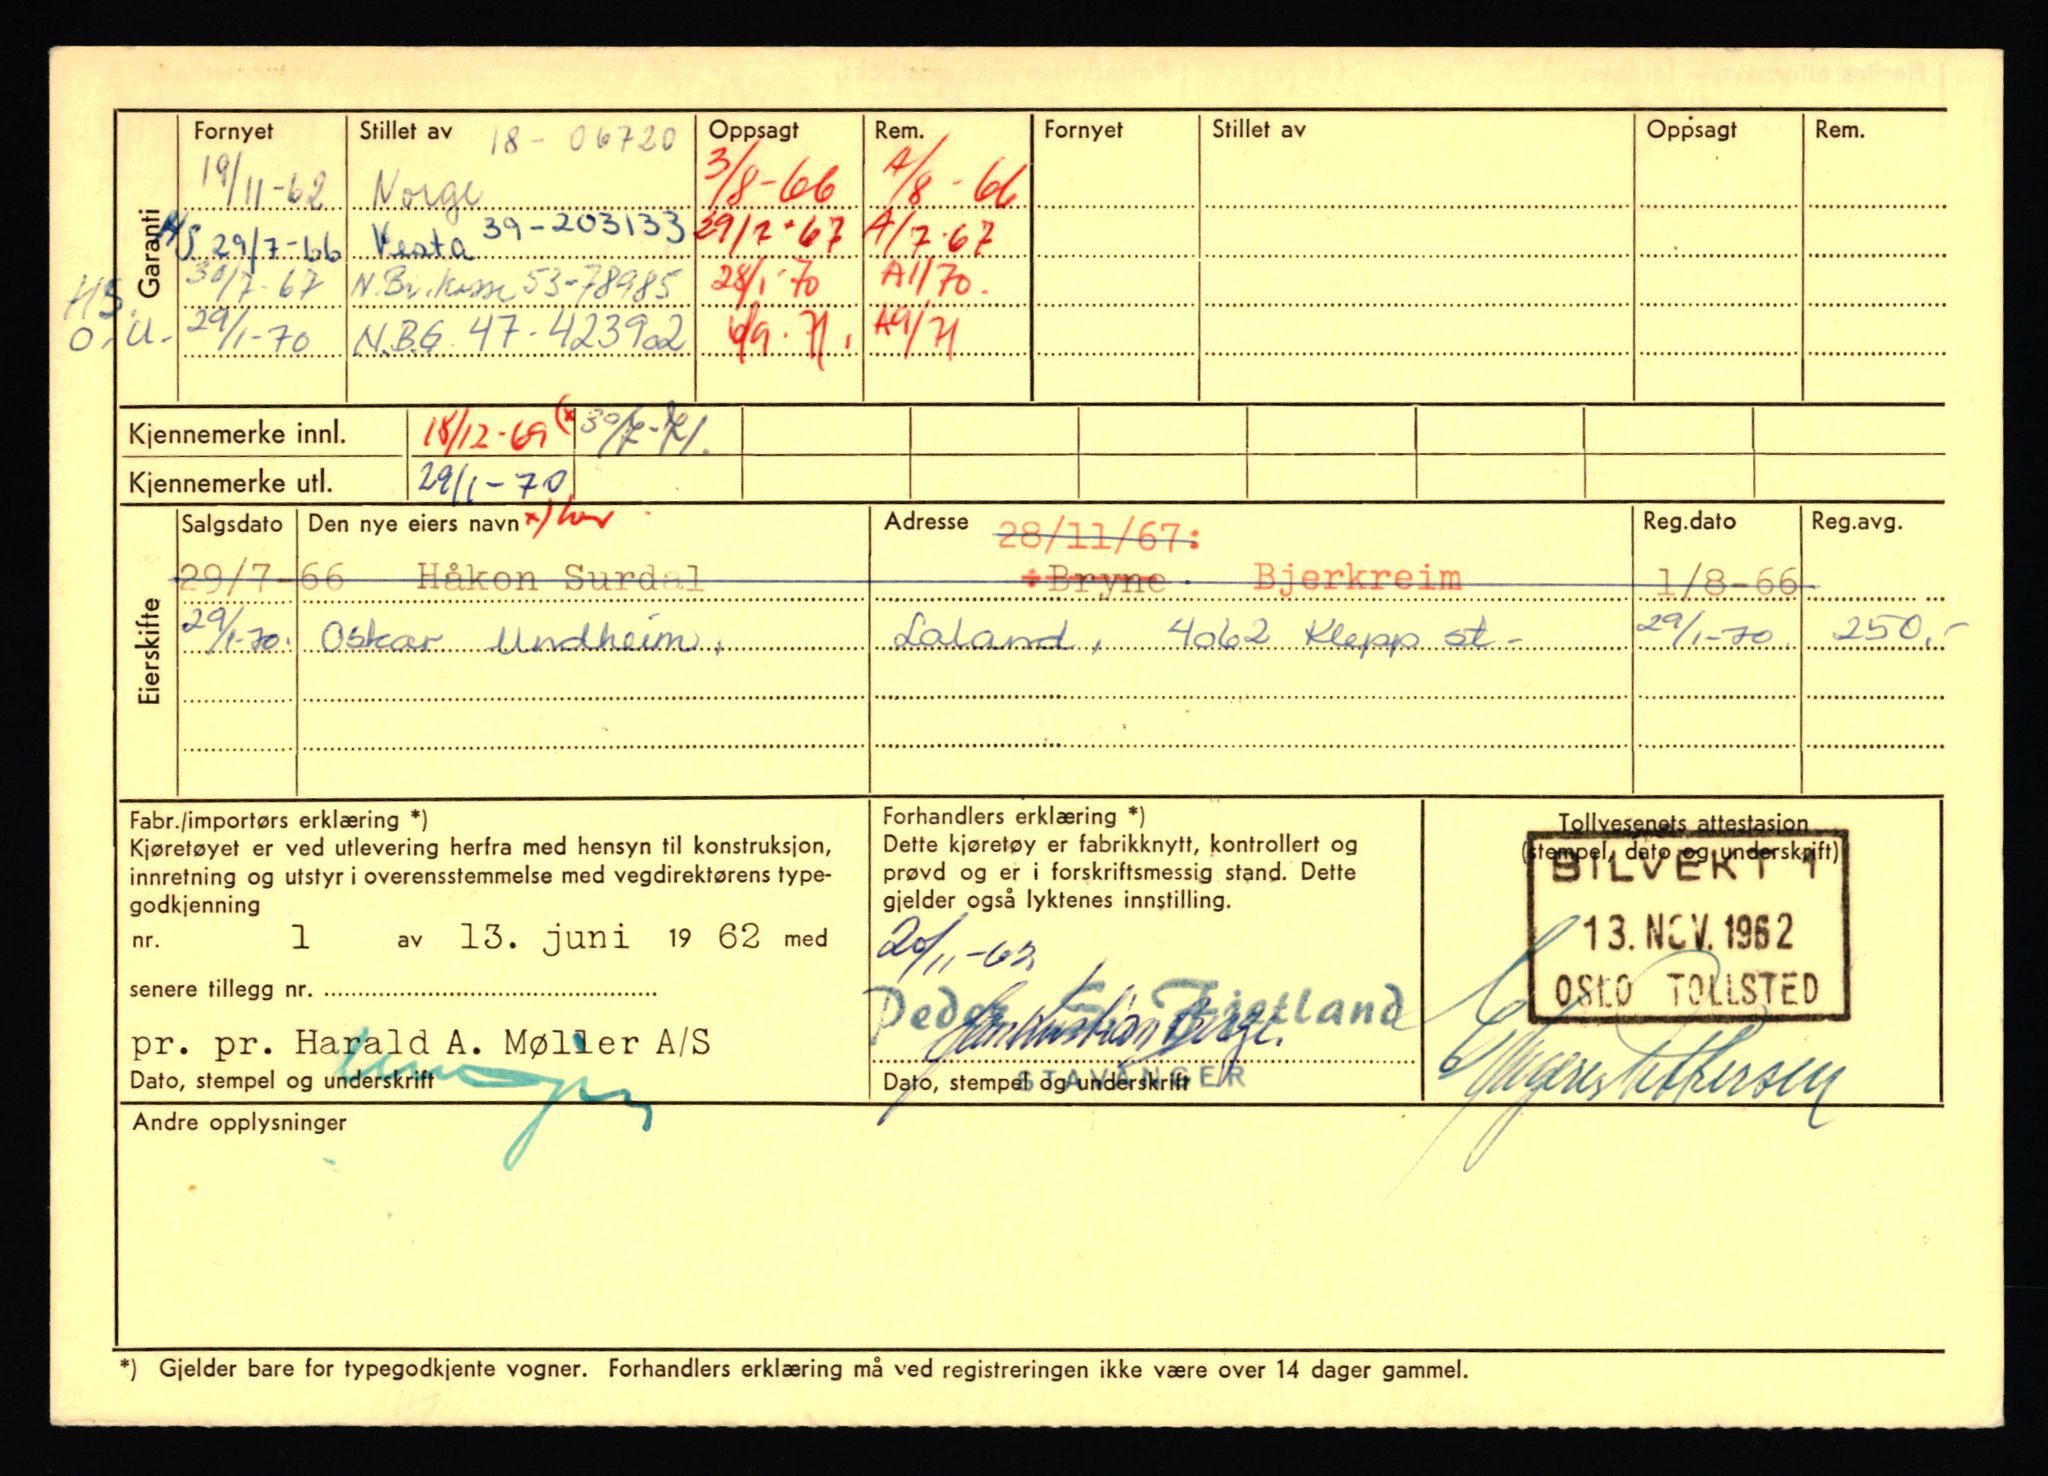 Garanti
Fornyet Stillet av 18-06720 Oppsagt Rem. Fornyet Stillet av Oppsagt Rem.
19/11-62 Norge 3/8-66 A/8-66
29/7-66 Vesta 39-203133 29/7-67 A/7-67
HS. 30/7-67 N.Bi.kasse 53-78985 28/1-70 A1/70.
O.U. 29/1-70 N.B.G. 47-423902 6/9-71. A9/71
Kjennemerke innl. 18/12-69 (x 30/7-71.
Kjennemerke utl. 29/1-70
Eierskifte
Salgsdato Den nye eiers navn x) Adresse 28/11/67: Reg.dato Reg.avg.
29/7-66 Håkon Surdal ÷Bryne. Bjerkreim 1/8-66
29/1-70. Oskar Undheim, Laland, 4062 Klepp st- 29/1-70. 250,-
Fabr./importørs erklæring *)
Kjøretøyet er ved utlevering herfra med hensyn til konstruksjon,
innretning og utstyr i overensstemmelse med vegdirektørens type-
godkjenning
nr. 1 av 13. juni 19 62 med
senere tillegg nr.
pr. pr. Harald A. Møller A/S
Dato, stempel og underskrift
Forhandlers erklæring *)
Dette kjøretøy er fabrikknytt, kontrollert og
prøvd og er i forskriftsmessig stand. Dette
gjelder også lyktenes innstilling.
20/11-62
Peder Fjetland
Jan Kristian Berge.
STAVANGER
Dato, stempel og underskrift
Tollvesenets attestasjon
(stempel, dato og underskrift)
BILVEKT 1
13. NOV. 1962
OSLO TOLLSTED
Pettersen
Andre opplysninger
*) Gjelder bare for typegodkjente vogner. Forhandlers erklæring må ved registreringen ikke være over 14 dager gammel.